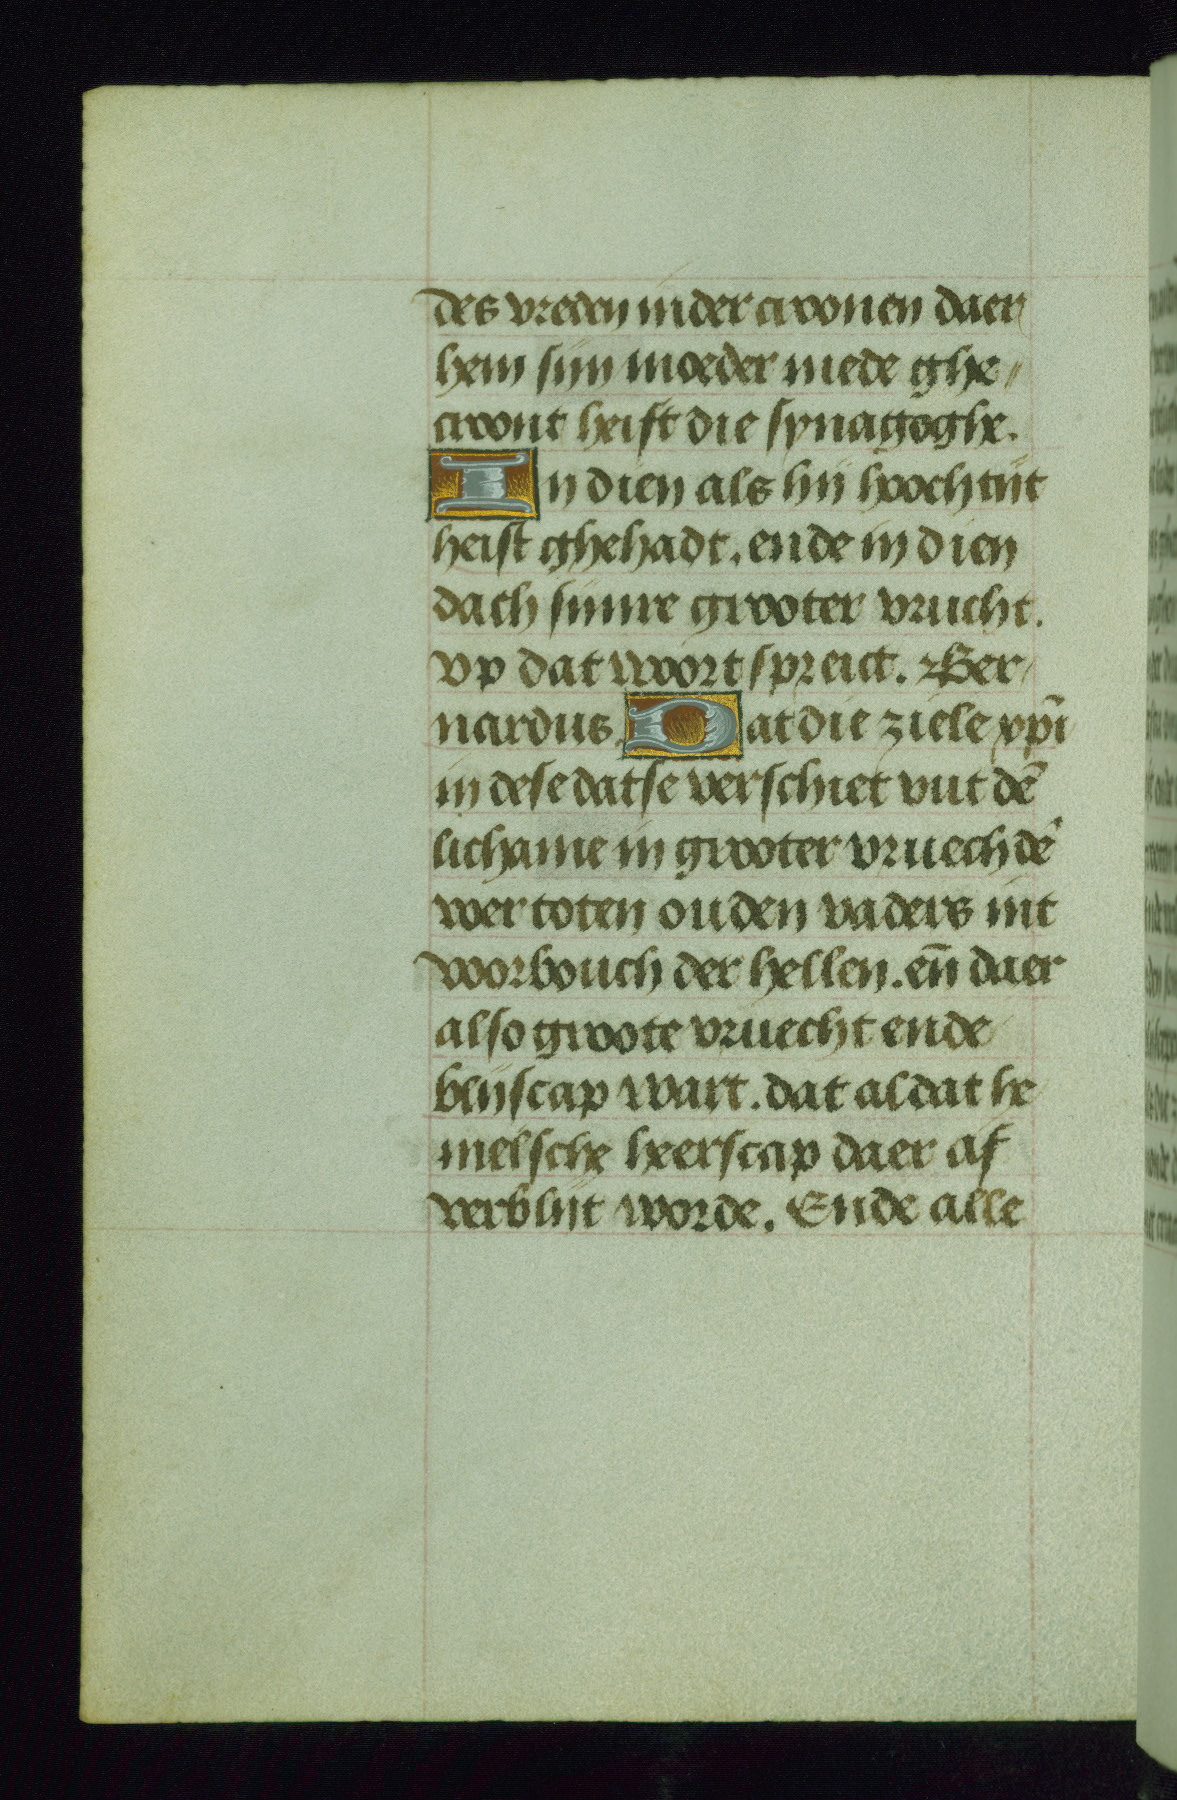 des vreden in der croonen daer
hem sijn moeder mede ghe„
croont heift die synagoghe.
In dien als hij hooch tijt
heift ghehadt. ende in dien
dach sijnre grooter vrucht.
vp dat woort spreict. Ber
nardus. Dat die ziele xp̄i
in dese datse verschiet vut dē
lichame in grooter vruechdē
wer toten ouden vaders int
voorbouch der hellen. en̄ daer
also groote vruecht ende
blijscap wart. dat al dat he
melsche heerscap daer af
verblijt worde. Ende alle